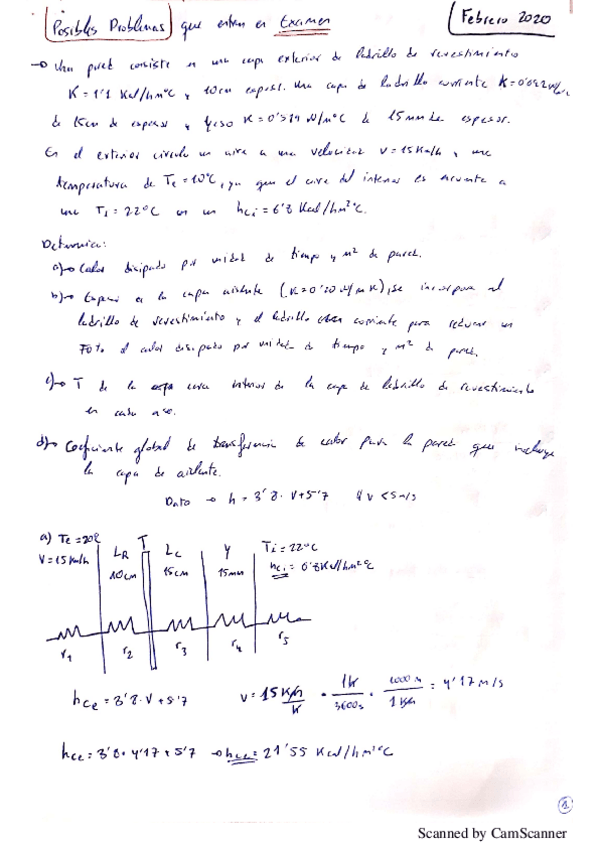 Posibles Problemas que entran en Examen
Febrero 2020
→ Una pared consiste en una capa exterior de ladrillo de revestimiento
K = 1'1 Kcal/hm°C y 10cm espesor. Una capa de ladrillo corriente K =
de 15cm de espesor y yeso K = de 15mm de espesor.
En el exterior circula un aire a una velocidad v = 15 Km/h y una
temperatura de Te = 10°C, ya que el aire del interior se encuentra a
una Ti = 22°C con un hci = 6'8 Kcal/hm²°C.
Determina:
a) → Calor disipado por unidad de tiempo y m² de pared.
b) → Espesor de la capa aislante (K = 0'20 W/mK), se incorpora al
ladrillo de revestimiento y el ladrillo corriente para reducir un
70% el calor disipado por unidad de tiempo y m² de pared.
c) → T de la cara interior de la capa de ladrillo de revestimiento
en cada caso.
d) → Coeficiente global de transferencia de calor para la pared que incluye
la capa de aislante.
Dato → h = 3'8 · V + 5'7 v < 5 m/s
a) Te = V = 15 Km/h
LR 10cm
T
Lc 15cm
Y 15mm
Ti = 22°C
hci = 6'8 Kcal/hm²°C
r1 r2 r3 r4 r5
hce = 3'8 · V + 5'7 V = 15 Km/h · 1h/3600s · 1000m/1Km = 4'17 m/s
hce = 3'8 · 4'17 + 5'7 → hce = 21'55 Kcal/hm²°C
1
Scanned by CamScanner